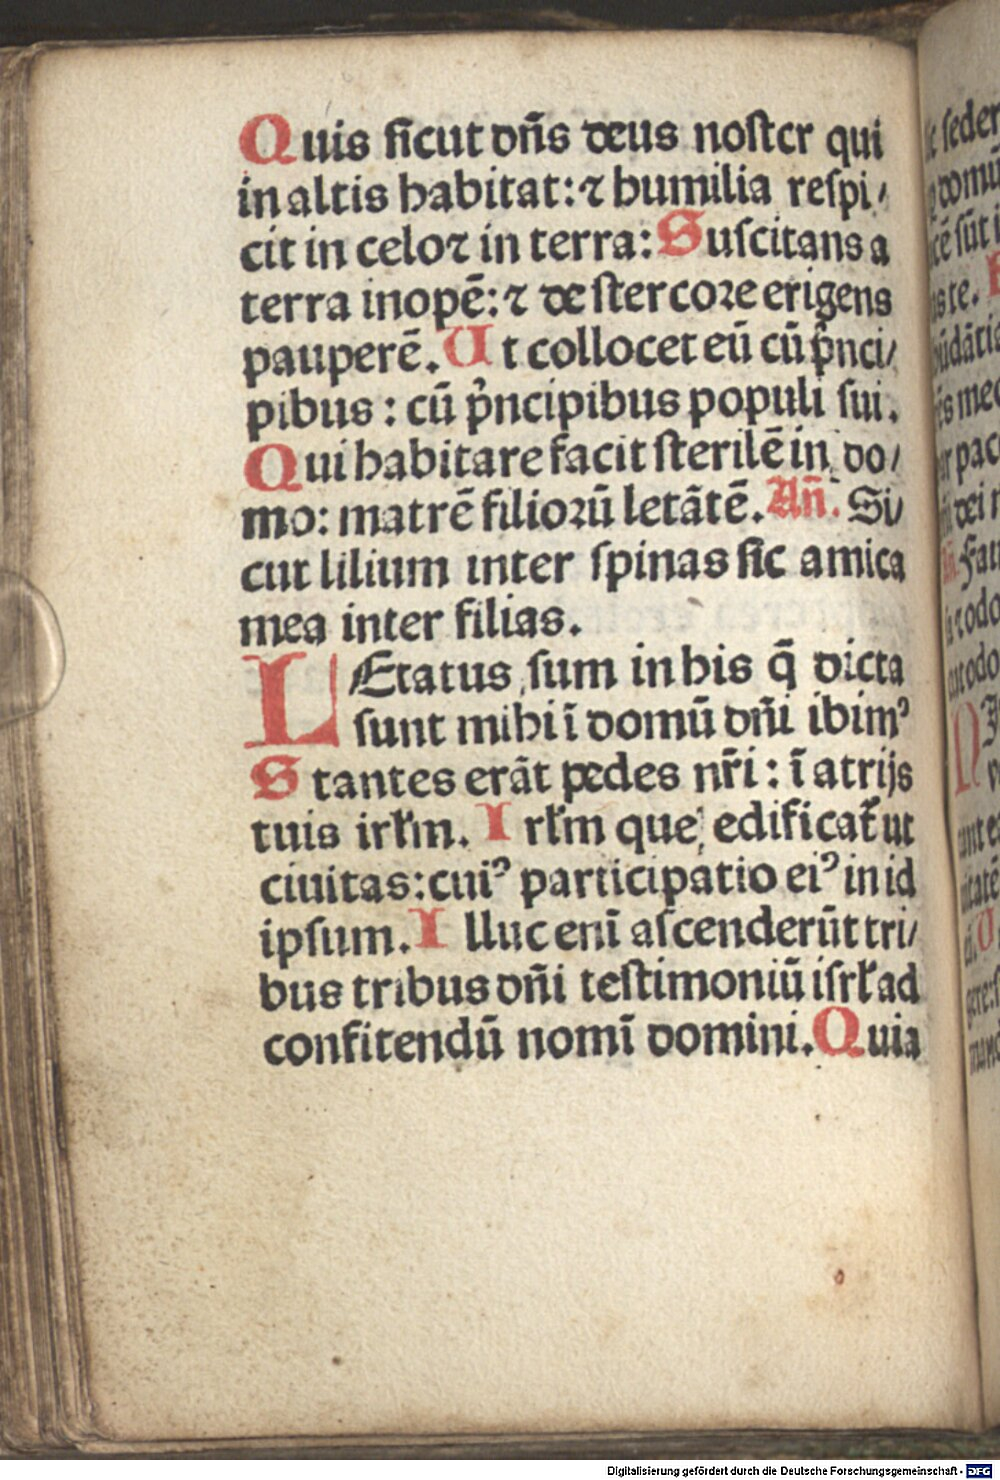 Quis ſicut dñs deus noſter qui
in altis habitat: ⁊ humilia reſpi/
cit in celo ⁊ in terra: Suſcitans a
terra inopē: ⁊ de ſtercoꝛe erigens
pauperē. Ut collocet eū cū p̍nci/
pibus: cū p̍ncipibus populi ſui.
Qui habitare facit ſterilē in do/
mo: matrē filioꝛū letātē. Añ. Si/
cut lilium inter ſpinas ſic amica
mea inter filias.
LEtatus ſum in his q̄ dicta
ſunt mihi ī domū dñi ibimꝰ
Stantes erāt pedes nr̄i: ī atrijs
tuis irłm. Irłm que edificat᷑ ut
ciuitas: cuiꝰ participatio eiꝰ in id
ipſum. Illuc enī aſcenderūt tri/
bus tribus dñi teſtimoniū iſrł ad
confitendū nomī domini. Quia
Digitalisierung gefördert durch die Deutsche Forschungsgemeinschaft - DFG